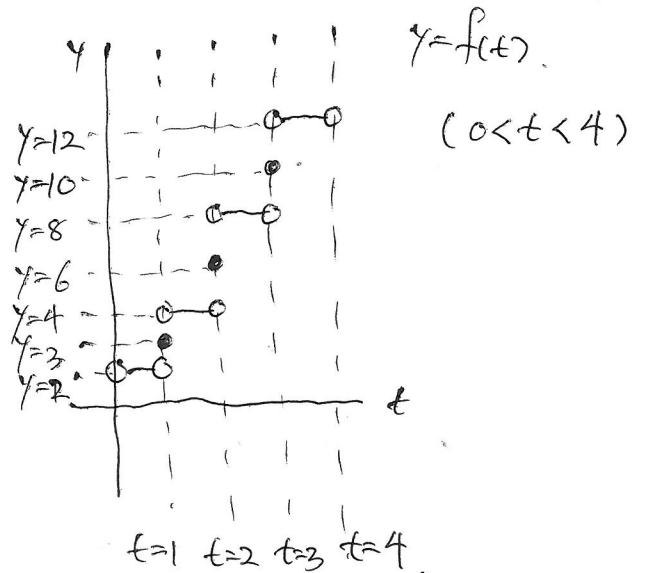 y
y=f(t).
(0<t<4)
y=12
y=10
y=8
y=6
y=4
y=3
y=2
t
t=1 t=2 t=3 t=4